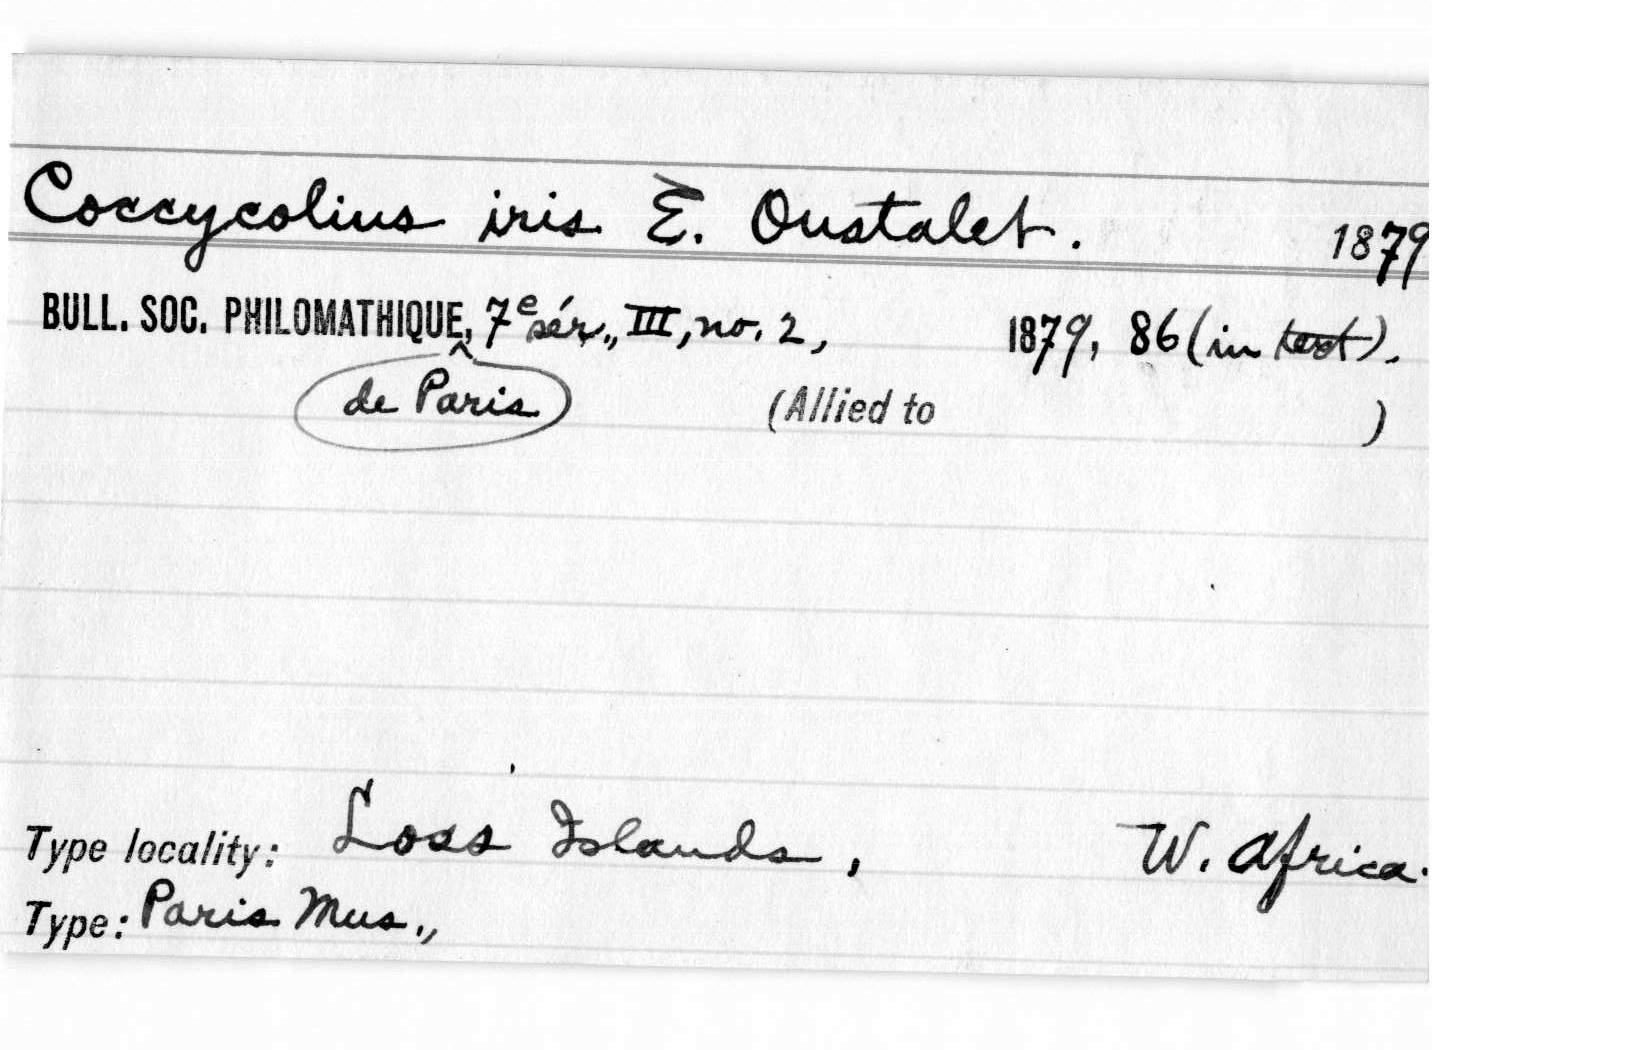 Coccycolius iris E. Oustalet. 1879
BULL. SOC. PHILOMATHIQUE, 7e sér., III, no. 2, 1879, 86 (in text).
^
de Paris (Allied to )
Type locality: Loss Islands, W. Africa.
Type: Paris Mus.,